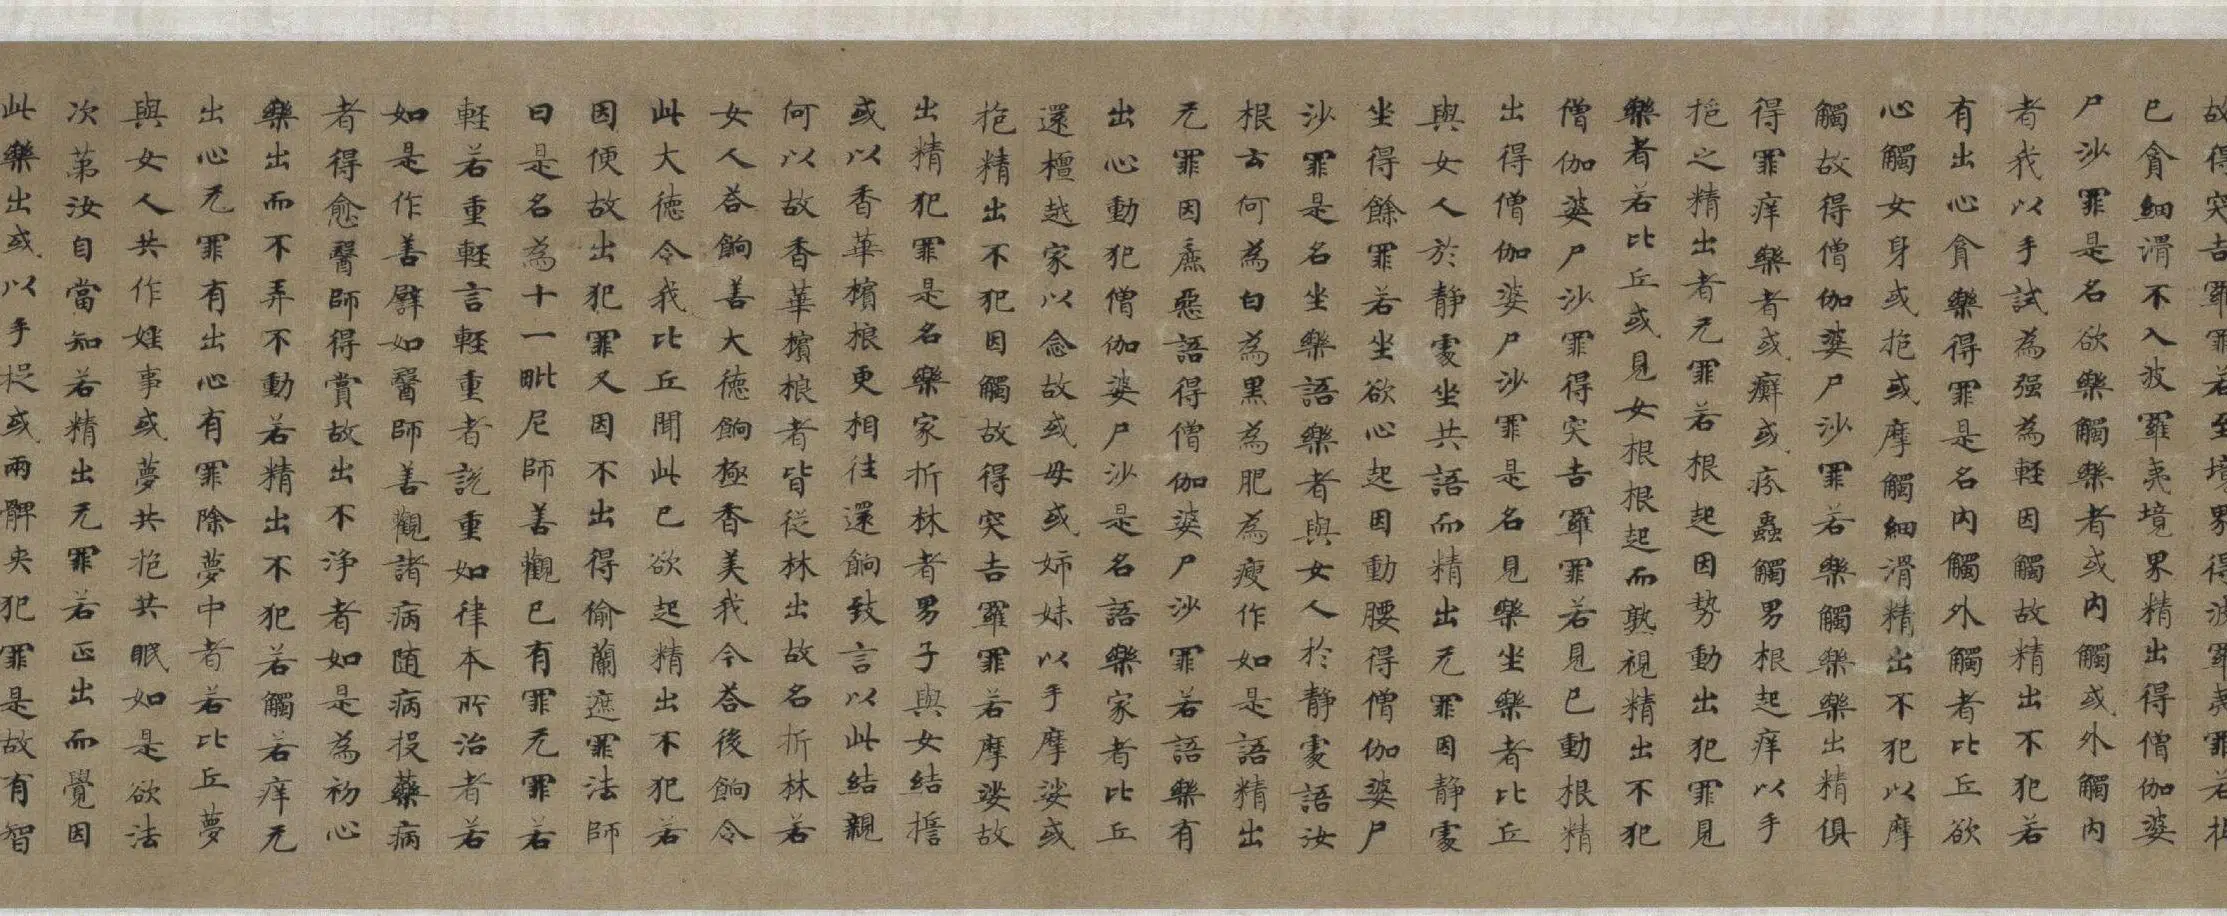 故得突吉羅罪若至境界得波羅夷罪若根
已貪細滑不入波羅夷境界精出得僧伽婆
尸沙罪是名欲樂觸樂者或內觸或外觸內
者我以手試為强為軽因觸故精出不犯若
有出心貪樂得罪是名內觸外觸者比丘欲
心觸女身或抱或摩觸細滑精出不犯以摩
觸故得僧伽婆尸沙罪若樂觸樂樂出精俱
得罪痒樂者或癬或疥蟲觸男根起痒以手
挹之精出者无罪若根起因勢動出犯罪見
樂者若比丘或見女根根起而熟視精出不犯
僧伽婆尸沙罪得突吉羅罪若見已動根精
出得僧伽婆尸沙罪是名見樂坐樂者比丘
與女人於静處坐共語而精出无罪因静處
坐得餘罪若坐欲心起因動腰得僧伽婆尸
沙罪是名坐樂語樂者與女人於静處語汝
根云何為白為黑為肥為瘦作如是語精出
无罪因麁惡語得僧伽婆尸沙罪若語樂有
出心動犯僧伽婆尸沙是名語樂家者比丘
還檀越家以念故或母或姉妹以手摩娑或
抱精出不犯因觸故得突吉羅罪若摩娑故
出精犯罪是名樂家折林者男子與女結擔
或以香華檳榔更相往還餉致言以此結親
何以故香華檳榔者皆從林出故名折林若
女人荅餉善大徳餉極香美我今荅後餉令
此大徳令我比丘聞此已欲起精出不犯若
因便故出犯罪又因不出得偷蘭遮罪法師
曰是名為十一毗尼師善觀已有罪无罪若
軽若重軽言軽重者說重如律本所治者若
如是作善譬如醫師善觀諸病随病投藥病
者得愈醫師得賞故出不淨者如是為初心
樂出而不弄不動若精出不犯若觸若痒无
出心无罪有出心有罪除夢中者若比丘夢
與女人共作婬事或夢共抱共眠如是欲法
次第汝自當知若精出无罪若正出而覺因
此樂出或以手捉或兩髀夾犯罪是故有智